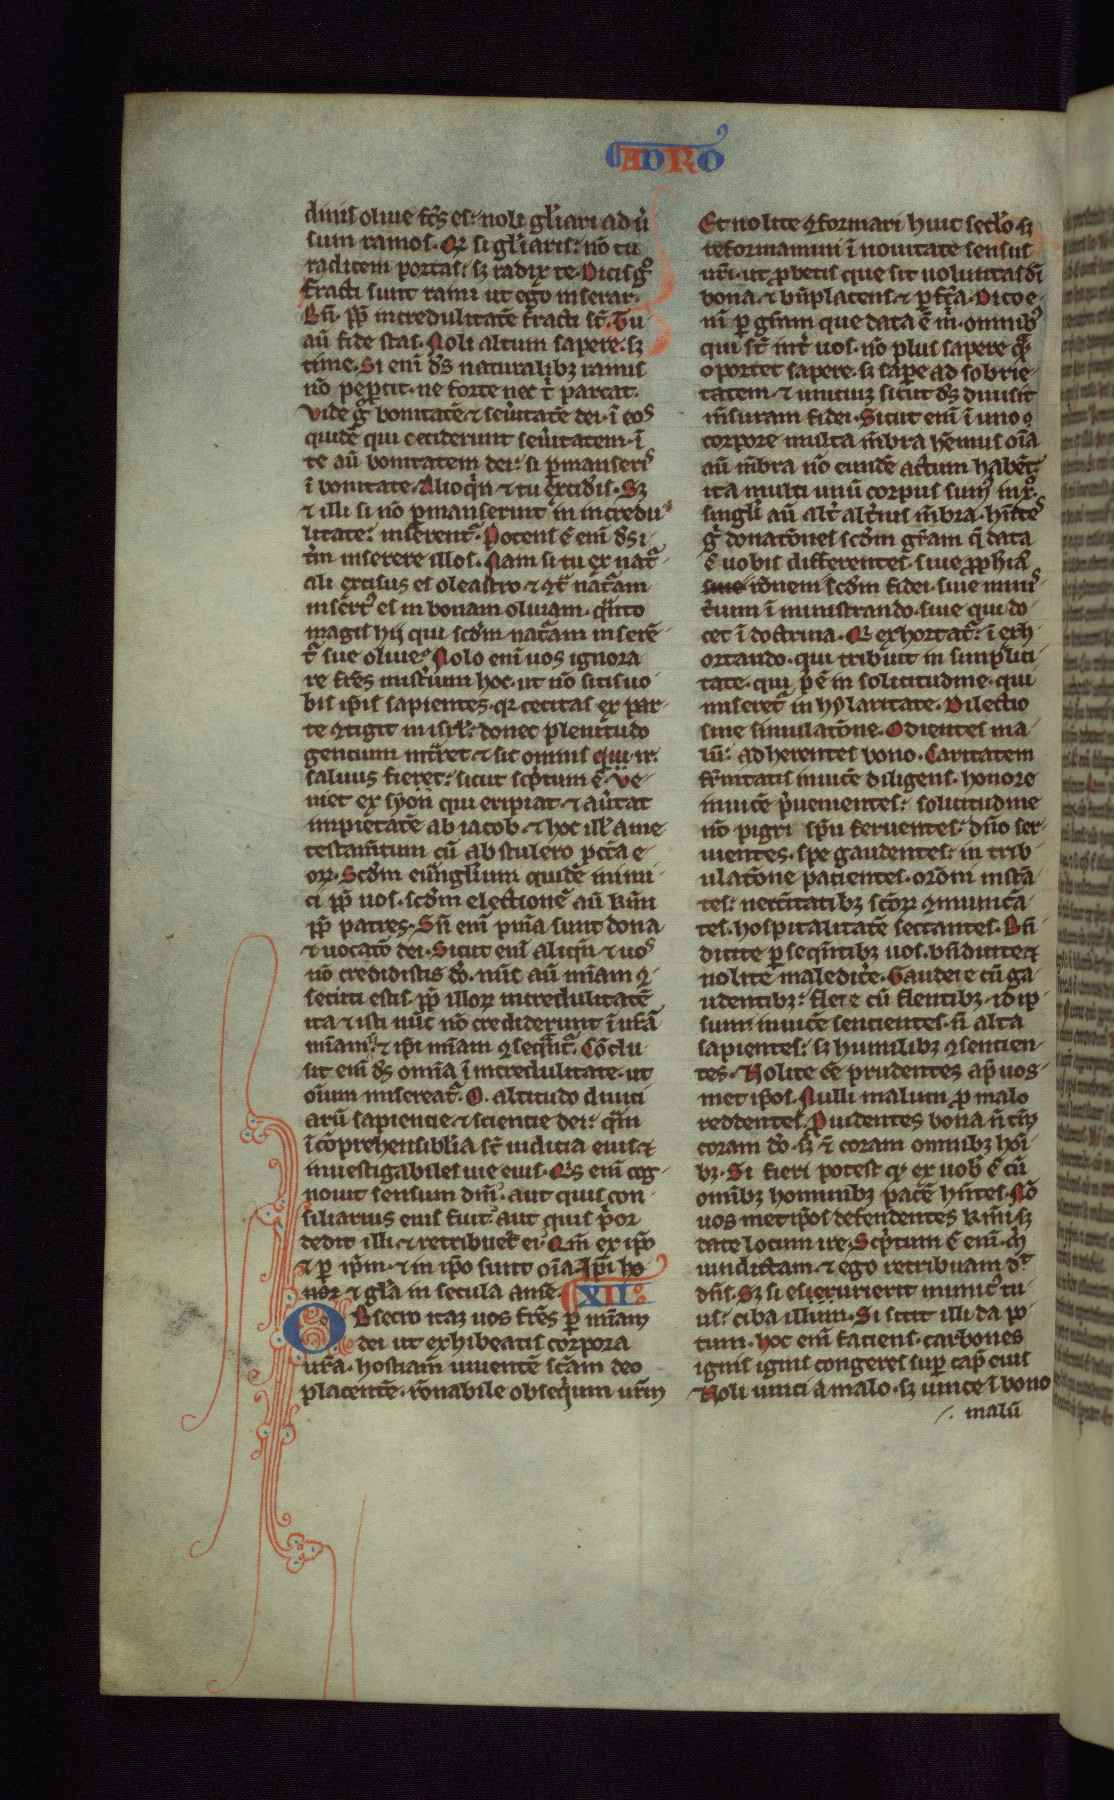 AD RO
dinis oliue fc̄s es: noli gl̄iari adu̾
sum ramos. Qr̄ si gl̄iaris: nō tu
radicem portas: sꝫ radix te. Dicis gͦ
fracti sunt rami ut ego inserar.
Bn̄. ꝓp̄ incredulitatē fracti st̄. Tu
aū fide stas. Noli altum sapere. sꝫ
time. Si eni d̄s naturalibꝫ ramis
nō peꝑcit. ne forte nec t̾ parcat.
Vide gͦ bonitatē ⁊ seu̾itatē dei. ī eos
quidē qui ceciderunt seu̾itatem. ī
te aū bonitatem dei: si ꝑmanseris
ī bonitate. Alioqͥn ⁊ tu excidis. Sꝫ
⁊ illi si nō ꝑmanserint in incredu
litate: inserent᷑. Potens ē eni d̄s i
tm̄ inserere illos. Nam si tu ex nat᷑
ali excisus es oleastro ⁊ ꝯt̾ nat᷑am
insertꝰ es in bonam oliuam. qͣnto
magis hij qui scd̄m nat᷑am inserē
t᷑ sue oliue? Nolo eni uos ignora
re fr̄es mist̾ium hoc. ut nō sitis uo
bis ip̄is sapientes. qꝛ cecitas ex par
te ꝯtigit in isrl̄: donec plenitudo
gentium intͣret. ⁊ sic omnis qui. ir.
saluus fieret: sicut scͥptum ē. Ve
niet ex syon qui eripiat. ⁊ au̾tat
impietatē ab iacob. ⁊ hoc ill̾ a me
testam̄tum cū abstulero pct̄a e
oꝝ. Scd̄m eūngl̾ium quidē inimi
ci ꝓp̄ uos. scd̄m electionē aū k̄mi
ꝓp̄ patres. Sn̄ eni pnīa sunt dona
⁊ uocatō dei. Sicut eni aliqn̄ ⁊ uos
nō credidistis do̾. nūc aū mīam ꝯ
secuti estis ꝓp̄ illoꝝ incredulitatē
ita ⁊ isti nūc nō crediderunt ī ur̄a
mīam: ⁊ ip̄i mīam ꝯseqͣnt᷑. Cōclu
sit eni d̄s omīa ī incredulitate. ut
oīum misereat᷑. O. altitudo diuici
arū sapiencie ⁊ sciencie dei: qͣm
īcōprehensiblia st̄ iudicia eius ⁊
inuestigabiles uie eius. Qͥs eni cog
nouit sensum dn̄i: aut quis con
siliarius eius fuit: aut quis pͥor
dedit illi ⁊ retribuet̾ ei. Qm̄ ex ip̄o
⁊ ꝑ ip̄m. ⁊ in ip̄o sunt oīa. Ip̄i ho
nor ⁊ gl̄a in secula am̄e. XII.
OBsecro itaꝫ uos fr̄es ꝑ mīam
dei ut exhibeatis corpora
ur̄a. hostiam uiuentē scām deo
placentē. rōnabile obseqͥum ur̄m
Et nolite ꝯformari huic secl̾o. sꝫ
reformamini ī nouitate sensus
ur̄i. ut ꝓbetis que sit uoluntas di̾
bona. ⁊ bn̄placens. ⁊ ꝑfc̄a. Dico e
ni ꝑ gr̄am que data ē m̾. omnibꝰ
qui st̄ int̾ uos. nō plus sapere qͣ
oportet sapere. sꝫ saꝑe ad sobrie
tatem. ⁊ unicuiꝫ sicut d̄s diuisit
m̄suram fidei. Sicut eni ī uno
corpore multa m̄bra hēmus oīa
aū m̄bra nō eundē actum habēt:
ita multi unū corpus sumꝰ in xͦ.
singl̾i aū alt̾ alt̾ius m̄bra. hn̄tes
gͦ donatōnes scd̄m gr̄am q̄ data
ē uobis differentes. siue ꝓphiā
siue rōnem scd̄m fidei. siue minis
t̾ium ī ministrando. siue qui do
cet ī doctrina. Qͥ exhortat᷑: ī exh
ortando. qui tribuit in simplici
tate. qui p̄e in solicitudine. qui
miseret᷑ in hylaritate. Dilectio
sine simulatōne. Odientes ma
lū: adherentes bono. Caritatem
fr̄nitatis inuicē diligens. honore
inuicē pͥuenientes: solicitudine
nō pigri sp̄u feruentes. dn̄o ser
uientes. spe gaudentes: in trib
ulatōne patientes. orōni instā
tes: necc̄itatibꝫ scōꝝ ꝯmunicā
tes. hospitalitatē sectantes. Bn̄
dicite ꝑseqn̄tibꝫ uos. bn̄dicite ⁊
nolite maledic̾e. Gaudere cū ga
udentibꝫ: flere cū flentibꝫ. id ip
sum inuicē sentientes. n̄ alta
sapientes: sꝫ humilibꝫ ꝯsentien
tes. Nolite ēe prudentes ap̄ uos
met ip̄os. Nulli malum ꝓ malo
reddentes. Prouidentes bona n̄ tm̄
coram do̾. sꝫ ⁊ coram omnibꝫ hoī
bꝫ. Si fieri potest qd̾ ex uob̾ ē cū
omībꝫ hominibꝫ pacē hn̄tes. Nō
uos met ip̄os defendentes k̄mi. sꝫ
date locum ire. Scͥptum ē eni. m̾
uindictam. ⁊ ego retribuam d̄t
dn̄s. Sꝫ si esurierit inimicꝰ tu
us: ciba illum. Si sitit illi da po
tum. hoc eni faciens. carbones
ignis ignis congeres suꝑ cap̄ eius
Noli uinci a malo. sꝫ uince ī bono
malū